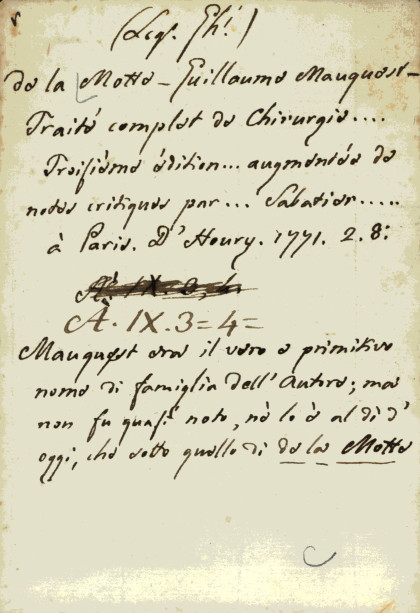 (Leg. Ghi.)
de la Motte - Guillaume Mauquest -
Traité complet de Chirurgie....
Troisiéme édition... augmentée de
notes critiques par... Sabatier.....
à Paris. D'Houry. 1771. 2. 8:
A. IX. 3. 4.
A. IX. 3=4=
Mauquest era il vero e primitivo
nome di famiglia dell'Autore; ma
non fu quasi noto, nè lo è al dì d'
oggi, che sotto quello di de la Motte